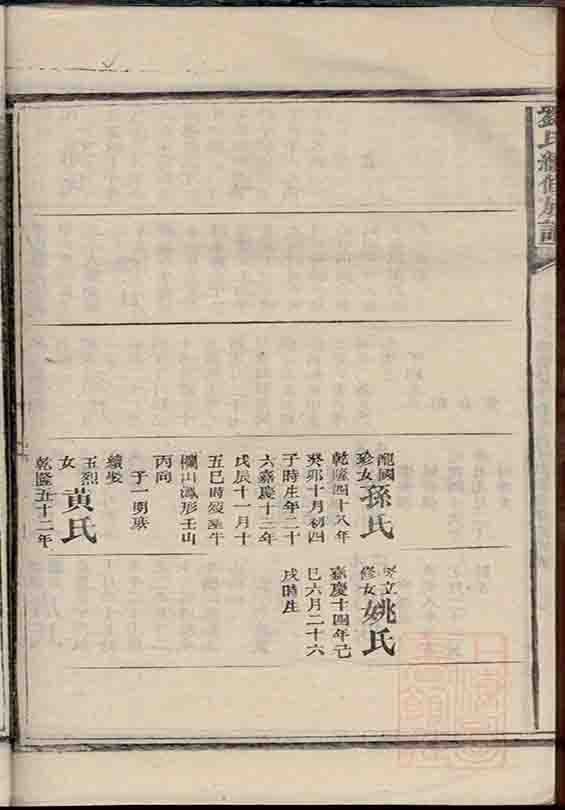 劉氏續修族譜
龍國
珍女孫氏
乾隆四十八年
癸卯十月初四
子時生年二十
六嘉慶十三年
戊辰十一月十
五巳時歿葬牛
欄山鳳形壬山
丙向
子一明
續娶
玉烈
女黃氏
乾隆五十二年
立
修女姚氏
嘉慶十四年己
巳六月二十六
戌時生